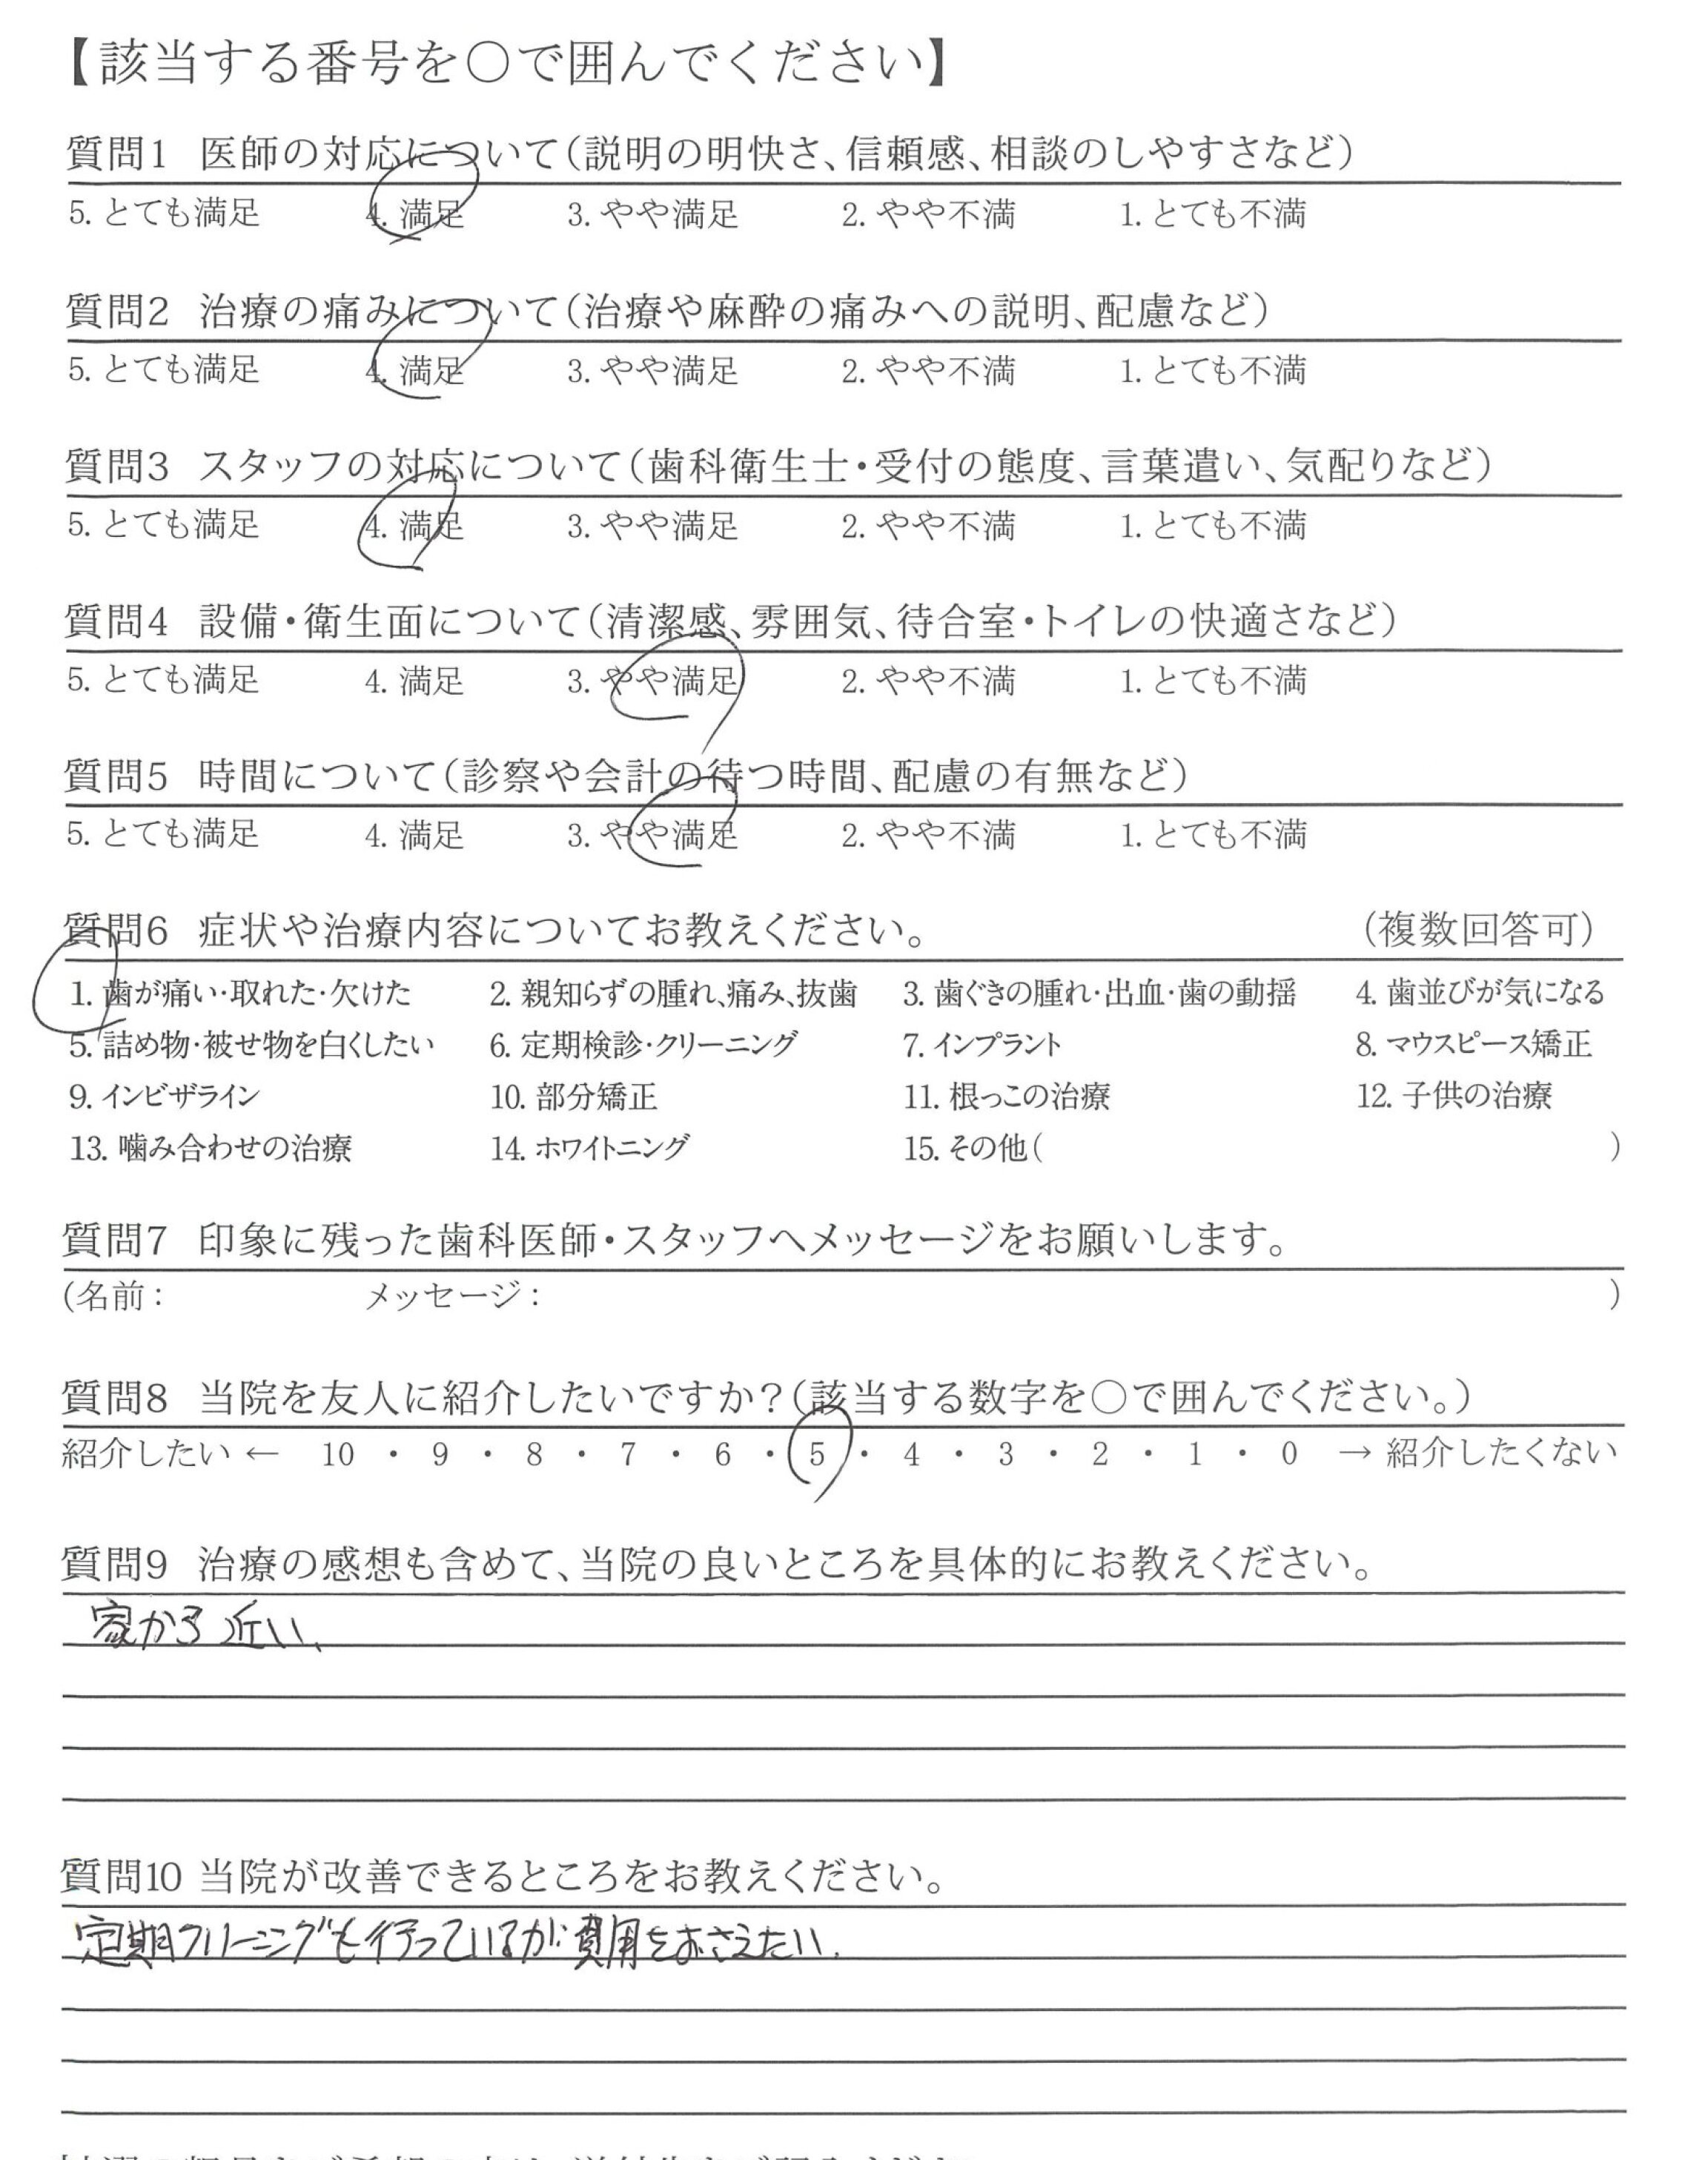 【該当する番号を○で囲んでください】
質問1 医師の対応について(説明の明快さ、信頼感、相談のしやすさなど)
5. とても満足 4. 満足 3. やや満足 2. やや不満 1. とても不満
質問2 治療の痛みについて(治療や麻酔の痛みへの説明、配慮など)
5. とても満足 4. 満足 3. やや満足 2. やや不満 1. とても不満
質問3 スタッフの対応について(歯科衛生士・受付の態度、言葉遣い、気配りなど)
5. とても満足 4. 満足 3. やや満足 2. やや不満 1. とても不満
質問4 設備・衛生面について(清潔感、雰囲気、待合室・トイレの快適さなど)
5. とても満足 4. 満足 3. やや満足 2. やや不満 1. とても不満
質問5 時間について(診察や会計の待つ時間、配慮の有無など)
5. とても満足 4. 満足 3. やや満足 2. やや不満 1. とても不満
質問6 症状や治療内容についてお教えください。 (複数回答可)
1. 歯が痛い・取れた・欠けた 2. 親知らずの腫れ、痛み、抜歯 3. 歯ぐきの腫れ・出血・歯の動揺 4. 歯並びが気になる
5. 詰め物・被せ物を白くしたい 6. 定期検診・クリーニング 7. インプラント 8. マウスピース矯正
9. インビザライン 10. 部分矯正 11. 根っこの治療 12. 子供の治療
13. 噛み合わせの治療 14. ホワイトニング 15. その他( )
質問7 印象に残った歯科医師・スタッフへメッセージをお願いします。
(名前: メッセージ: )
質問8 当院を友人に紹介したいですか?(該当する数字を○で囲んでください。)
紹介したい ← 10 ・ 9 ・ 8 ・ 7 ・ 6 ・ 5 ・ 4 ・ 3 ・ 2 ・ 1 ・ 0 → 紹介したくない
質問9 治療の感想も含めて、当院の良いところを具体的にお教えください。
家から近い、
質問10 当院が改善できるところをお教えください。
定期クリーニングも行っているが費用をおさえたい.